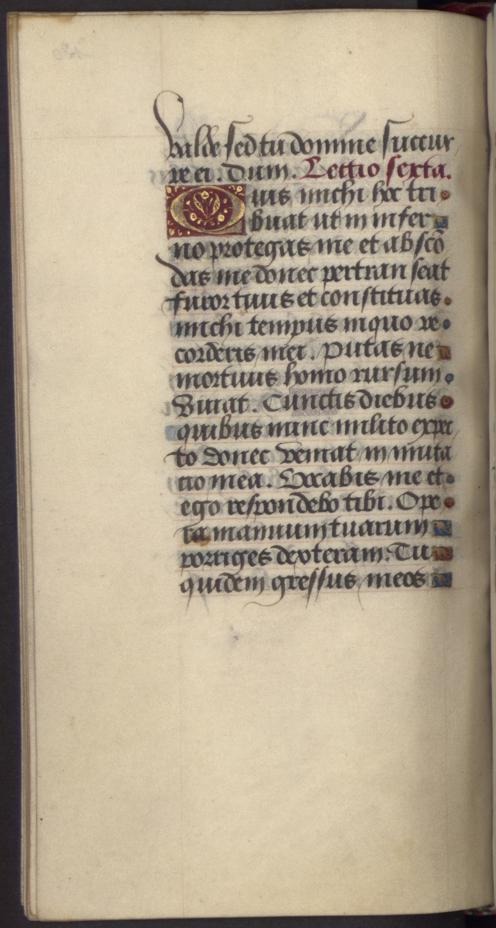 valde sed tu domine succur
re ei. Dum. Lectio sexta.
Quis michi hoc tri
buat ut in infer
no protegas me et abscō
das me donec pertranseat
furor tuus et constituas
michi tempus in quo re
corderis mei. Putas ne
mortuus homo rursum
vivat. Cunctis diebus
quibus nunc milito expec
to donec veniat inmuta
tio mea. Vocabis me et
ego respondebo tibi. Ope
ra manuum tuarum
porriges dexteram. Tu
quidem gressus meos